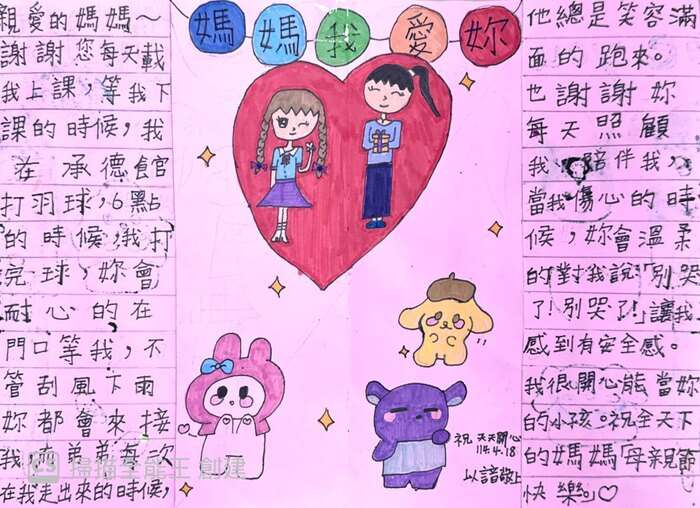 媽媽我愛妳
親愛的媽媽~
謝謝您每天載
我上課,等我下
課的時候,我
在承德館
打羽球,6點
的時候,我打
完球,妳會
耐心的在
門口等我,不
管刮風下雨
妳都會來接
我,弟弟每次
在我走出來的時候,
他總是笑容滿
面的跑來。
也謝謝妳
每天照顧
我 陪伴我,
當我傷心的時
候,妳會溫柔
的對我說「別哭
了!別哭了!」讓我
感到有安全感。
我很開心能當妳
的小孩。祝全天下
的媽媽「母親節
快樂。♡
祝 天天開心
114.4.18
以諳敬上
CS 掃描全能王 創建